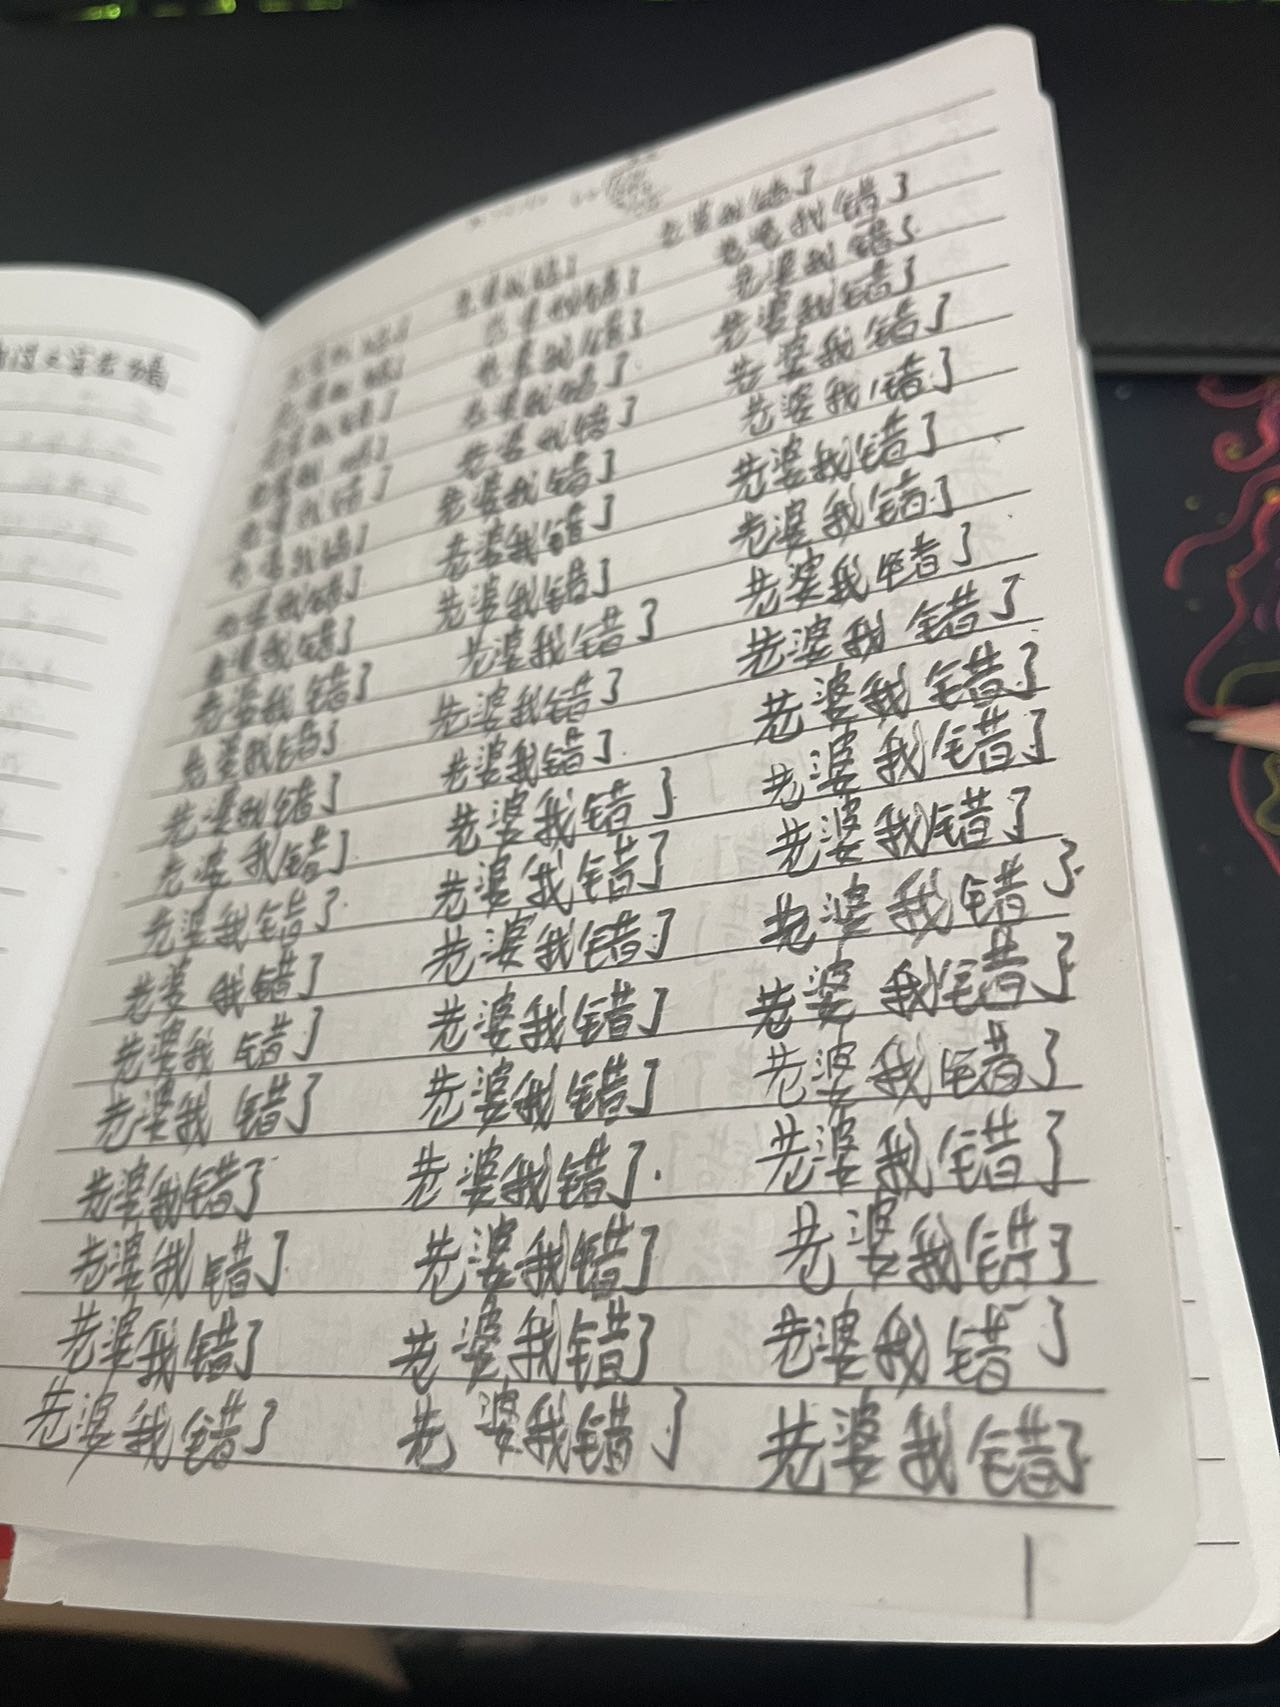 老婆我错了
老婆我错了 老婆我错了
老婆我错了 老婆我错了 老婆我错了
老婆我错了 老婆我错了 老婆我错了
老婆我错了 老婆我错了 老婆我错了
老婆我错了 老婆我错了 老婆我错了
老婆我错了 老婆我错了 老婆我错了
老婆我错了 老婆我错了 老婆我错了
老婆我错了 老婆我错了 老婆我错了
老婆我错了 老婆我错了 老婆我错了
老婆我错了 老婆我错了 老婆我错了
老婆我错了 老婆我错了 老婆我错了
老婆我错了 老婆我错了 老婆我错了
老婆我错了 老婆我错了 老婆我错了
老婆我错了 老婆我错了 老婆我错了
老婆我错了 老婆我错了 老婆我错了
老婆我错了 老婆我错了 老婆我错了
老婆我错了 老婆我错了 老婆我错了
老婆我错了 老婆我错了 老婆我错了
老婆我错了 老婆我错了 老婆我错了
1